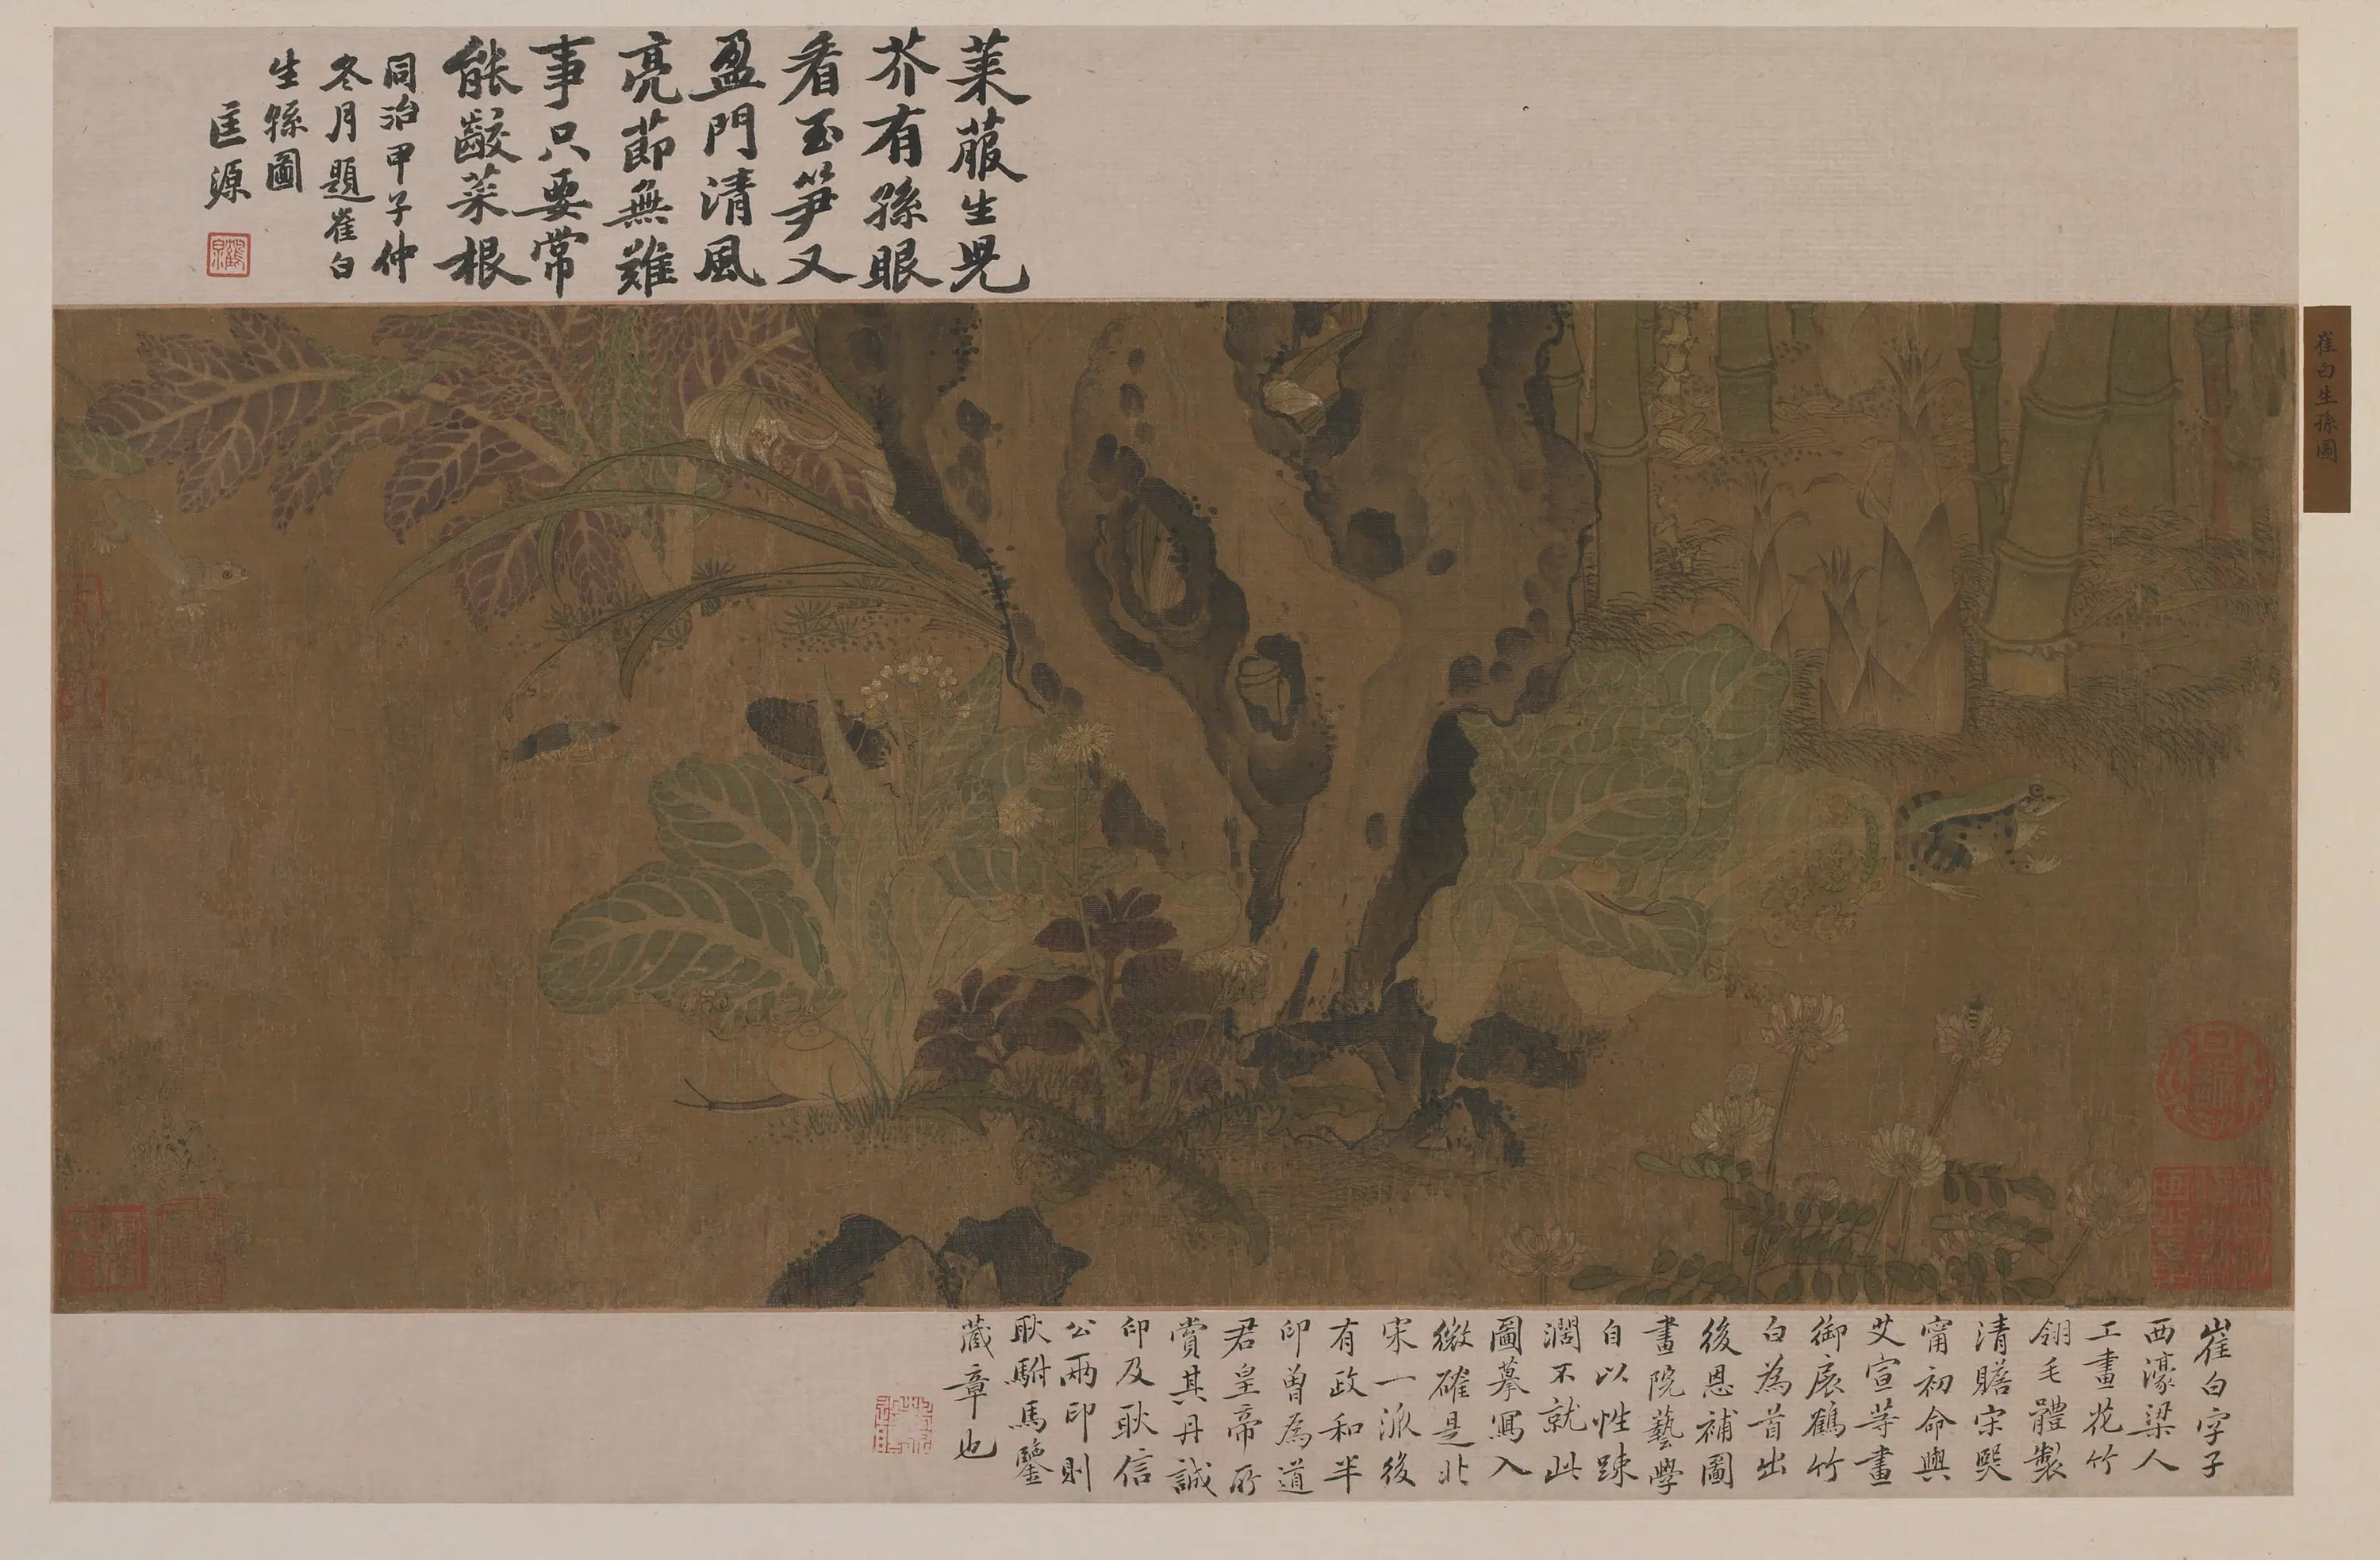 萊菔生兒
芥有孫眼
看玉筍又
盈門清風
亮節無難
事只要常
能齩菜根
同治甲子仲
冬月題崔白
生孫圖
匡源
崔白生孫圖
崔白字子
西濠梁人
工畫花竹
翎毛體製
清贍宋熙
甯初命與
艾宣等畫
御扆鶴竹
白為首出
後恩補圖
畫院藝學
自以性踈
濶不就此
圖摹寫入
微確是北
宋一派後
有政和半
印曽為道
君皇帝所
賞其丹誠
印及耿信
公兩印則
耿駙馬鑒
藏章也